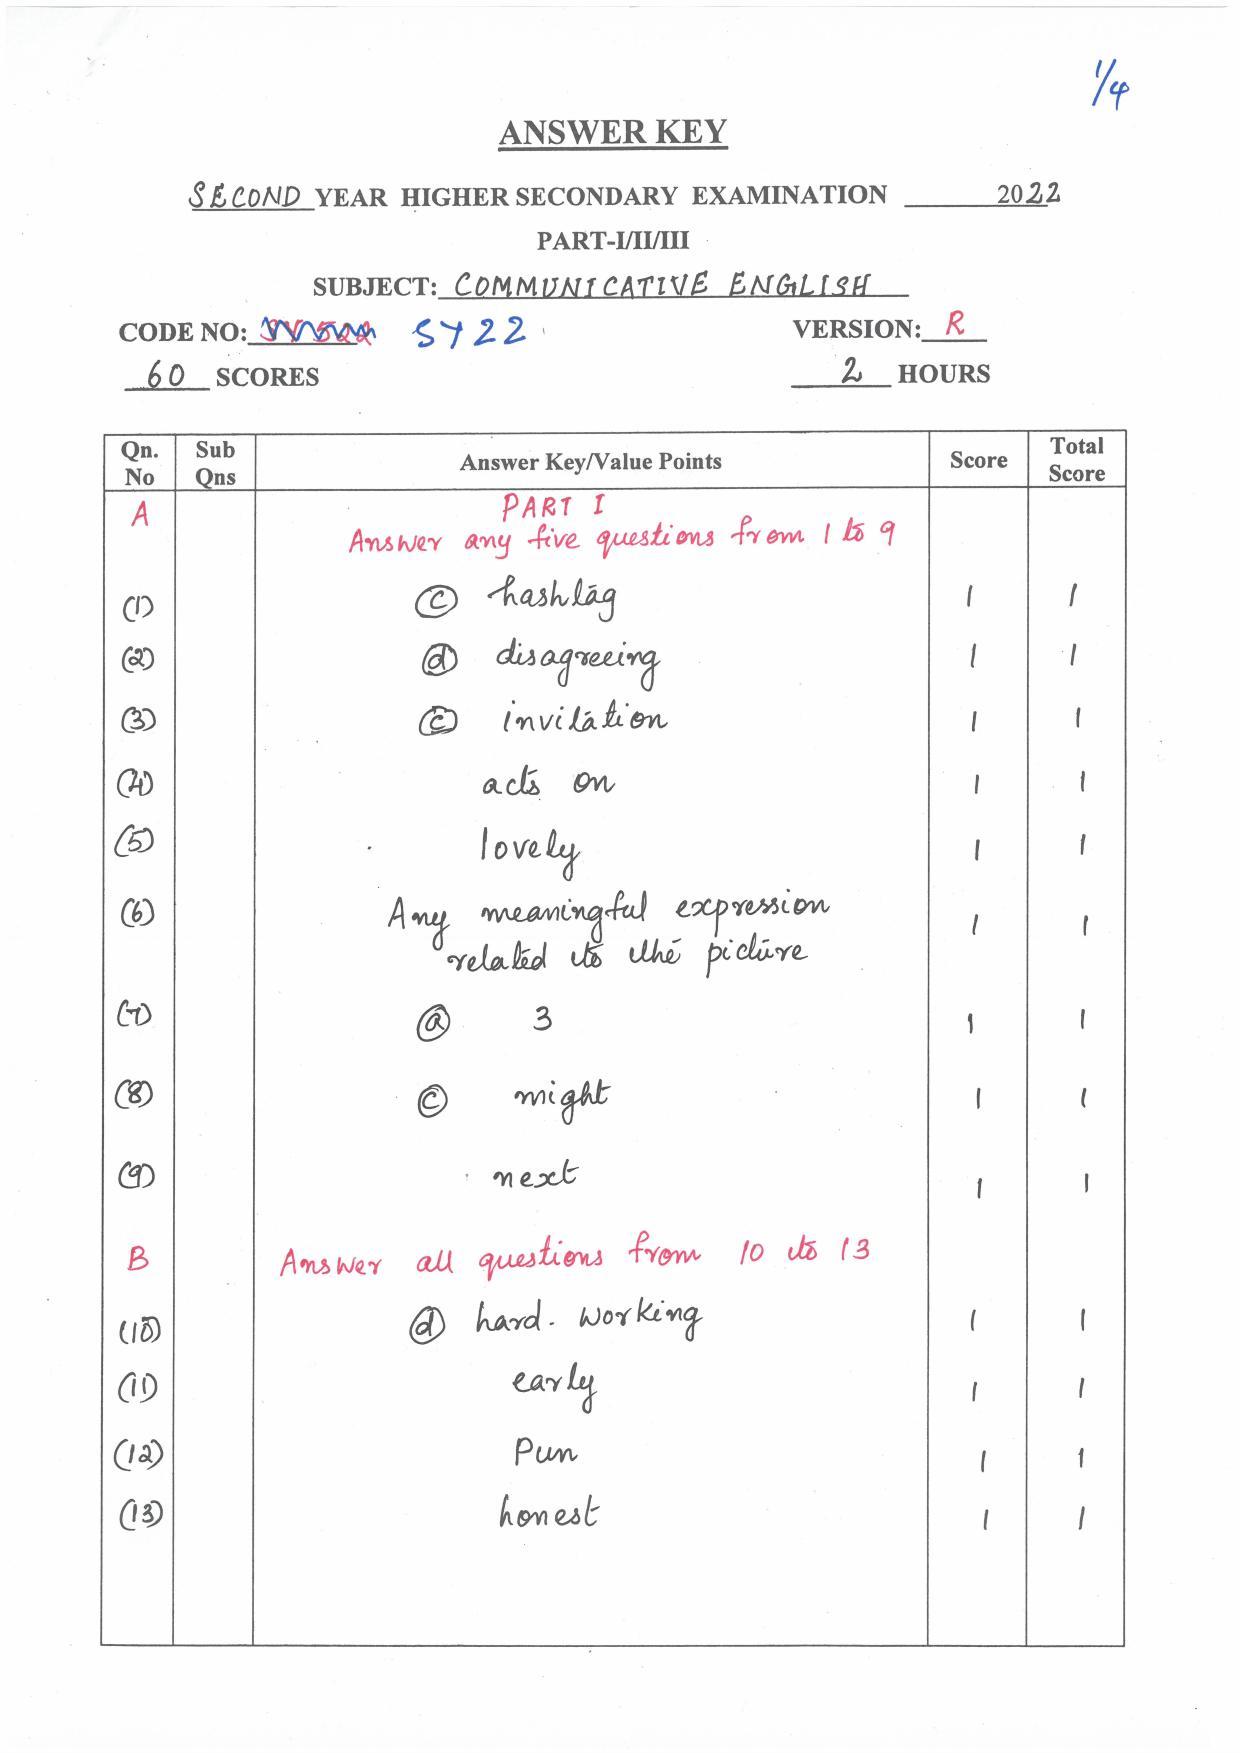 1/4
ANSWER KEY
SECOND YEAR HIGHER SECONDARY EXAMINATION 2022
PART-I/II/III
SUBJECT: COMMUNICATIVE ENGLISH
CODE NO: SY22 VERSION: R
60 SCORES 2 HOURS
Qn. No Sub Qns Answer Key/Value Points Score Total Score
A PART I
Answer any five questions from 1 to 9
(1) (c) hashtag 1 1
(2) (d) disagreeing 1 1
(3) (c) invitation 1 1
(4) acts on 1 1
(5) lovely 1 1
(6) Any meaningful expression 1 1
related to the picture
(7) (a) 3 1 1
(8) (c) might 1 1
(9) next 1 1
B Answer all questions from 10 to 13
(10) (d) hard-working 1 1
(11) early 1 1
(12) Pun 1 1
(13) honest 1 1